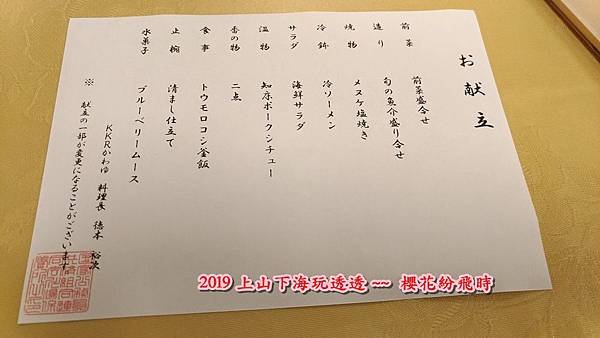 お献立
前菜 前菜盛合せ
造り 旬の魚介盛り合せ
焼物 メヌケ塩焼き
冷鉢 冷ソーメン
サラダ 海鮮サラダ
温物 知床ポークシチュー
香の物 二点
食事 トウモロコシ釜飯
止椀 清まし仕立て
水菓子 ブルーベリームース
※ 献立の一部が変更になることがございます。
KKRかわゆ 料理長 徳本 裕次
2019 上山下海玩透透 ~~ 櫻花紛飛時